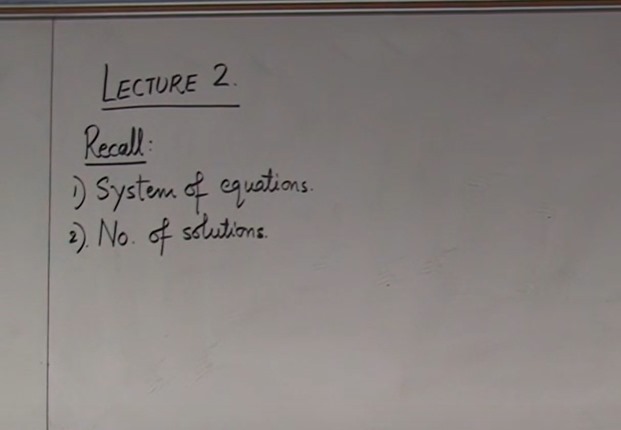 LECTURE 2.
Recall:
1) System of equations.
2). No. of solutions.